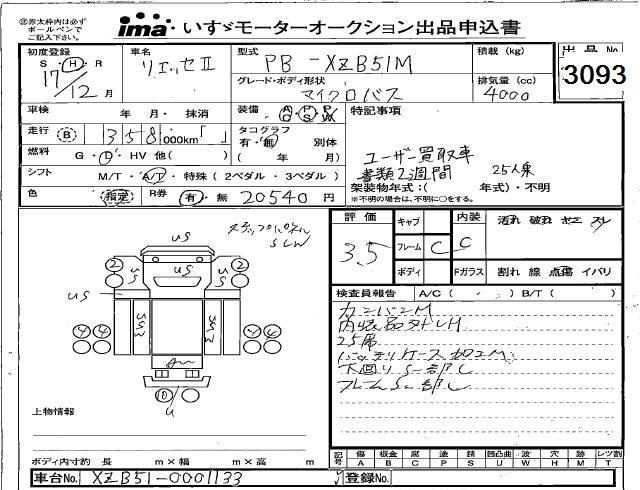 ㊟赤太枠内は必ず
ボールペンで
ご記入下さい。
ima いすゞモーターオークション出品申込書
初度登録
S・H・R
17/12月
車名
リエッセⅡ
型式
PB-XZB51M
積載 (kg)
出品No.
3093
グレード・ボディ形状
マイクロバス
排気量 (cc)
4000
車検 年 月・抹消
装備
特記事項
走行 B 358,000km「 」
タコグラフ
有・無 別体
( 年 月)
燃料 G・L・HV 他( )
ユーザー買取車
書類2週間 25人乗
シフト M/T・A/T・特殊(2ペダル・3ペダル)
架装物年式:( 年式)・不明
※不明の場合は、不明に○をする。
色 指定
R券 有・無 20540円
評価
3.5
キャブ
フレーム C
ボディ
内装
C
Fガラス
汚れ 破れ ヤニ スレ
割れ 線 点傷 イパリ
検査員報告 A/C( ・ ) B/T( )
カンバンM
内装品タトレH
25席
バッテリケース加工M
下廻りS一部C
フレームS一部C
US
US
US
US
US
2
2
4
4
4
4
10
U
上物情報
ボディ内寸約 長 m×幅 m×高 m
記号
傷 A
板金 B
腐 C
塗 P
錆 S
凹凸曲 U
波 W
穴 H
跡 M
レツ割 T
車台No. XZB51-0001133
登録No.